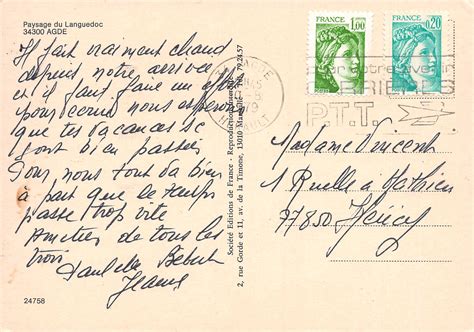 Paysage du Languedoc
34300 AGDE
Il fait vraiment chaud
depuis notre arrivée
et il faut faire un effort
pour nous espérons
que tes vacances se
sont bien passées
Pour nous tout va bien
à part que le temps
passe trop vite
Amitiés de tous les
trois
Bébert
Jeanne
24758
Société Editions de France - Reproduction interdite
2, rue Gorde et 11, av. de la Timone, 13010 Marseille - Tél. 79.24.57
FRANCE
1,00
FRANCE
0,20
POSTES
AGDE
HERAULT
P.T.T.
Madame Vincent
1 Ruelle à Mathieu
77850 Héricy